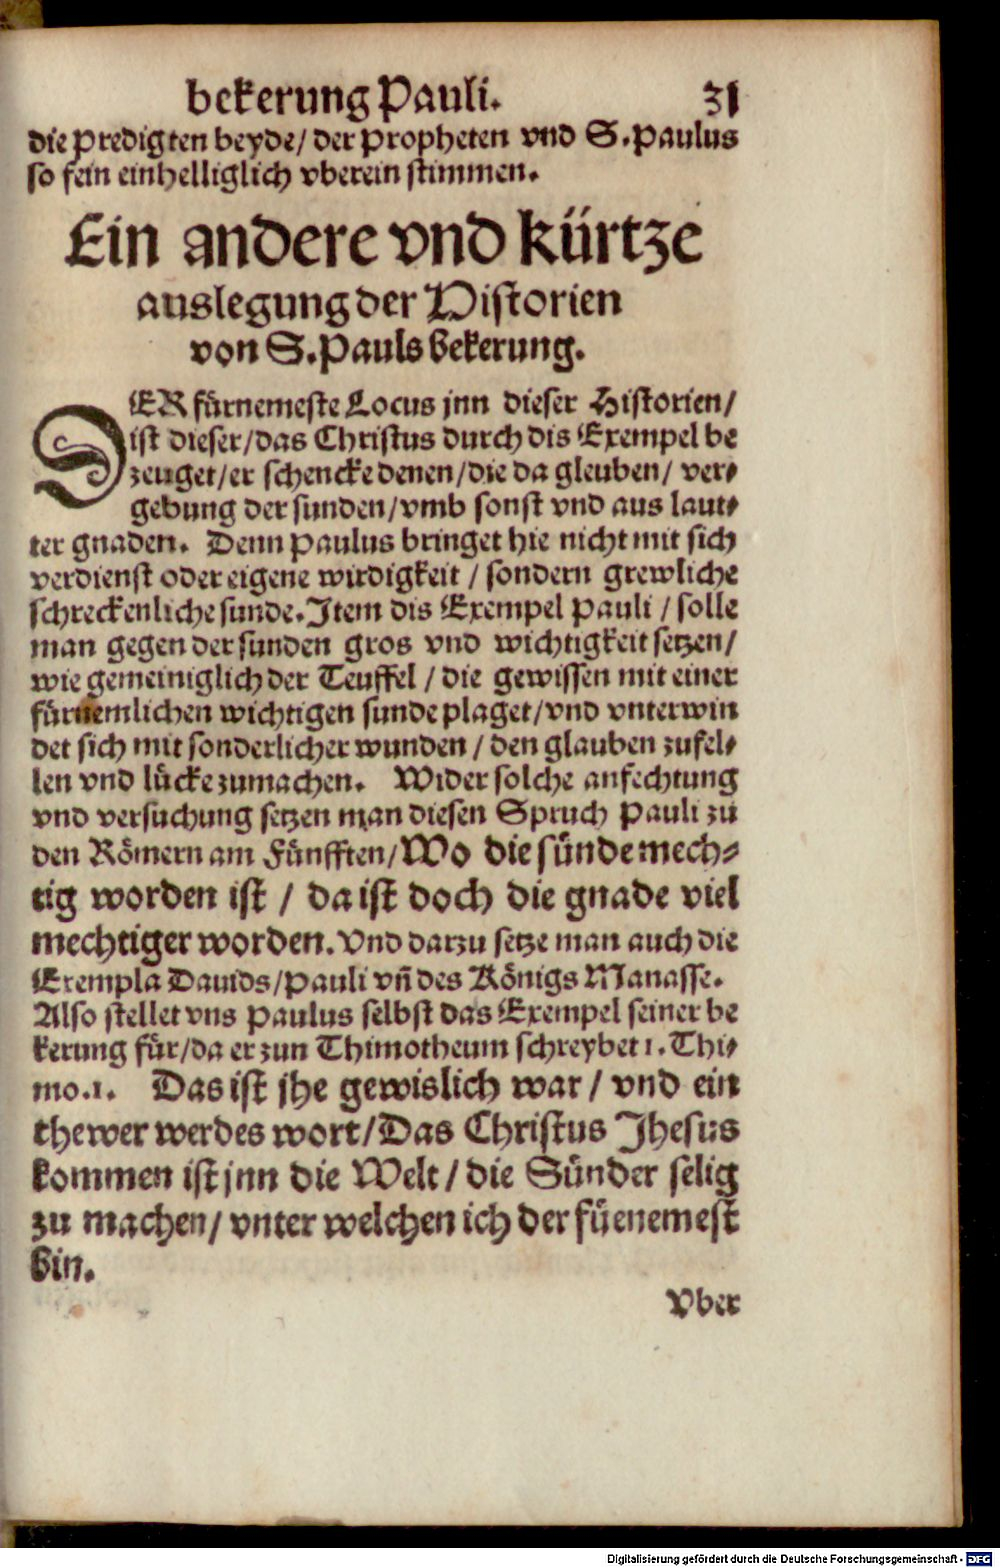 bekerung Pauli. 31
die predigten beyde/ der Propheten vnd S. Paulus
so fein einhelliglich vberein stimmen.
Ein andere vnd kürtze
auslegung der Historien
von S. Pauls bekerung.
DER fürnemeste Locus jnn dieser Historien/
ist dieser/das Christus durch dis Exempel be
zeuget/er schencke denen/die da gleuben/ ver⸗
gebung der sunden/vmb sonst vnd aus laut⸗
ter gnaden. Denn Paulus bringet hie nicht mit sich
verdienst oder eigene wirdigkeit / sondern grewliche
schreckenliche sunde. Item dis Exempel Pauli / solle
man gegen der sunden gros vnd wichtigkeit setzen/
wie gemeiniglich der Teuffel / die gewissen mit einer
fürnemlichen wichtigen sunde plaget/vnd vnterwin
det sich mit sonderlicher wunden / den glauben zufel⸗
len vnd lücke zumachen. Wider solche anfechtung
vnd versuchung setzen man diesen Spruch Pauli zu
den Römern am Fünfften/Wo die sünde mech⸗
tig worden ist / da ist doch die gnade viel
mechtiger worden. Vnd darzu setze man auch die
Exempla Dauids/Pauli vñ des Königs Manasse.
Also stellet vns Paulus selbst das Exempel seiner be
kerung für/da er zun Thimotheum schreybet 1. Thi⸗
mo.1. Das ist jhe gewislich war / vnd ein
thewer werdes wort/Das Christus Jhesus
kommen ist jnn die Welt / die Sünder selig
zu machen/ vnter welchen ich der füenemest
bin.
Vber
Digitalisierung gefördert durch die Deutsche Forschungsgemeinschaft - DFG